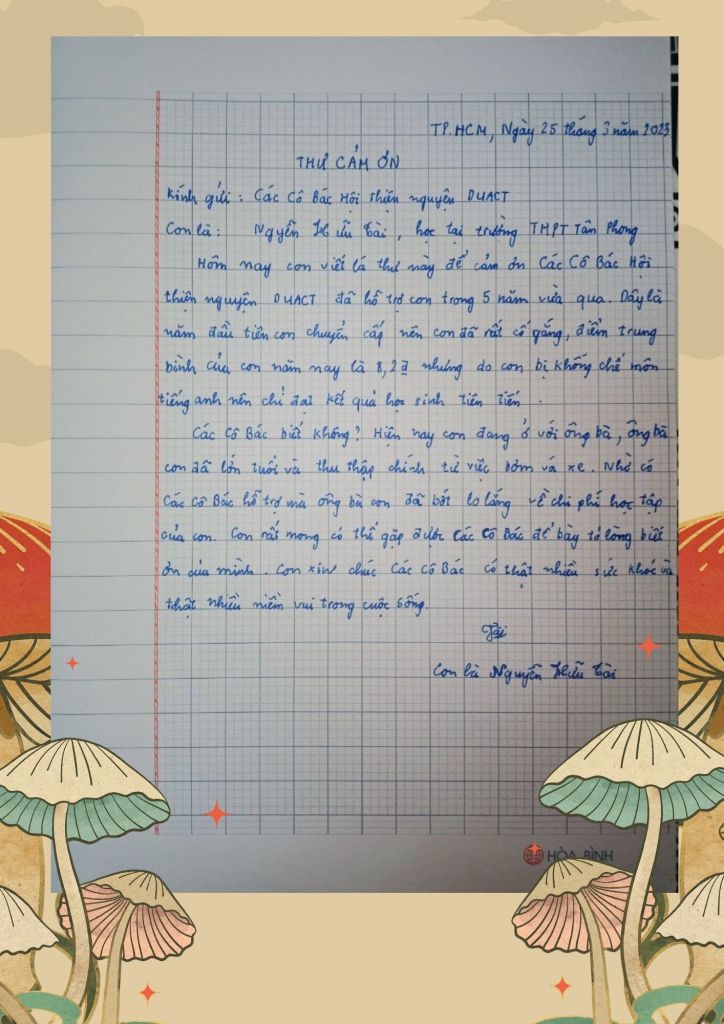 TP.HCM, Ngày 25 tháng 3 năm 2023
THƯ CẢM ƠN
Kính gửi : Các Cô Bác Hội thiện nguyện DUACT
Con là : Nguyễn Hữu Tài, học tại trường THPT Tân Phong
Hôm nay con viết lá thư này để cảm ơn Các Cô Bác Hội
thiện nguyện DUACT đã hỗ trợ con trong 5 năm vừa qua. Đây là
năm đầu tiên con chuyển cấp nên con đã rất cố gắng, điểm trung
bình của con năm nay là 8,2đ nhưng do con bị khống chế môn
tiếng anh nên chỉ đạt kết quả học sinh tiên tiến .
Các Cô Bác biết không? Hiện nay con đang ở với ông bà, ông bà
con đã lớn tuổi và thu thập chính từ việc bơm vá xe. Nhờ có
Các Cô Bác hỗ trợ mà ông bà con đã bớt lo lắng về chi phí học tập
của con. Con rất mong có thể gặp được Các Cô Bác để bày tỏ lòng biết
ơn của mình. Con xin chúc Các Cô Bác có thật nhiều sức khoẻ và
thật nhiều niềm vui trong cuộc sống.
Tài
Con là Nguyễn Hữu Tài
HÒA BÌNH